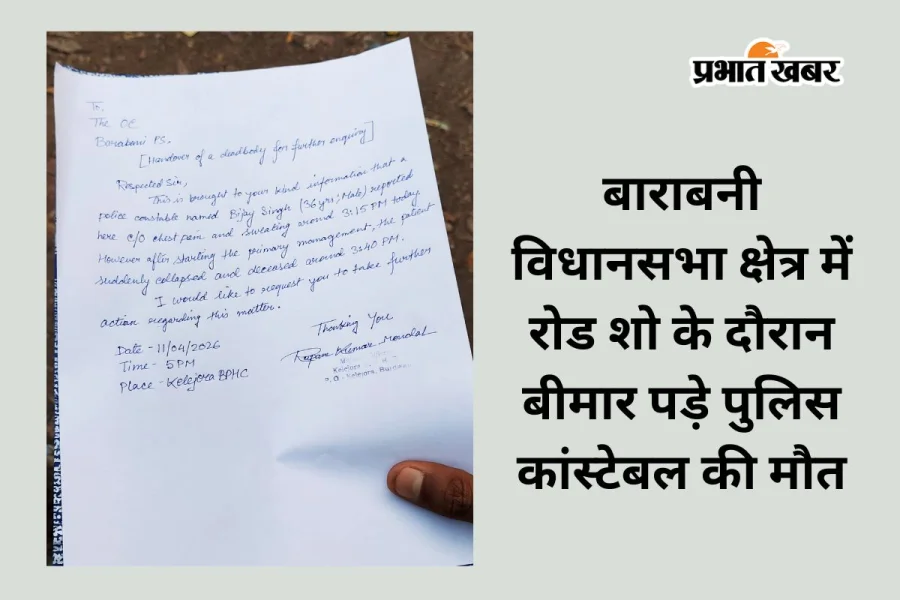 To,
The OC
Barabani PS.
[Handover of a deadbody for further enquiry]
Respected Sir,
This is brought to your kind information that a
police constable named Bijay Singh (36yrs; Male) reported
here c/o chest pain and sweating around 3:15 PM today
However after starting the primary management, the patient
suddenly collapsed and deceased around 3:40 PM.
I would like to request you to take further
action regarding this matter.
Thanking You
Date - 11/04/2026
Time - 5PM
Place - Kelejora BPHC
Kumar Mondal
प्रभात खबर
बाराबनी
विधानसभा क्षेत्र में
रोड शो के दौरान
बीमार पड़े पुलिस
कांस्टेबल की मौत